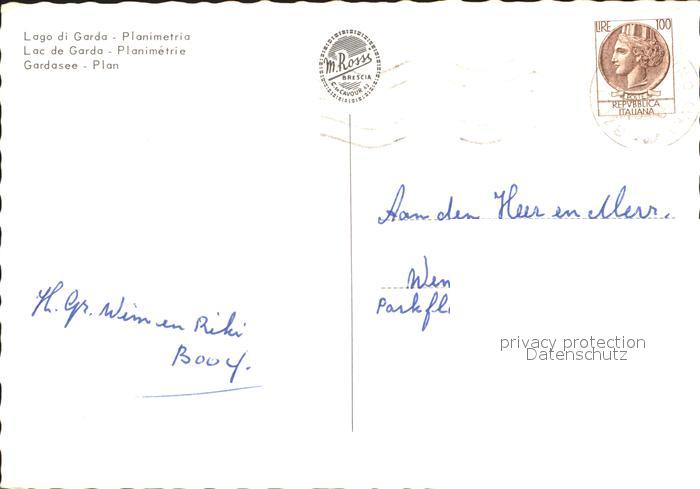 Lago di Garda - Planimetria
Lac de Garda - Planimétrie
Gardasee - Plan
M. Rossi
BRESCIA
C. CAVOUR
LIRE 100
POSTE
REPVBBLICA
ITALIANA
Aan den Heer en Mevr.
Wen
Parkfl
H. Gr. Wim en Riki
Booy.
privacy protection
Datenschutz